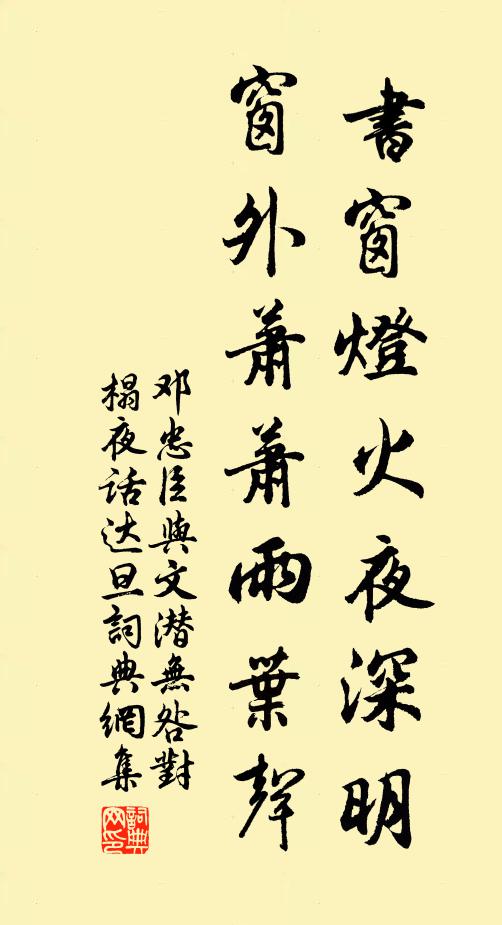 書窗燈火夜深明
窗外蕭蕭雨葉聲
邓忠臣與文潜無咎對
榻夜话达旦詞典網集
詞典網印